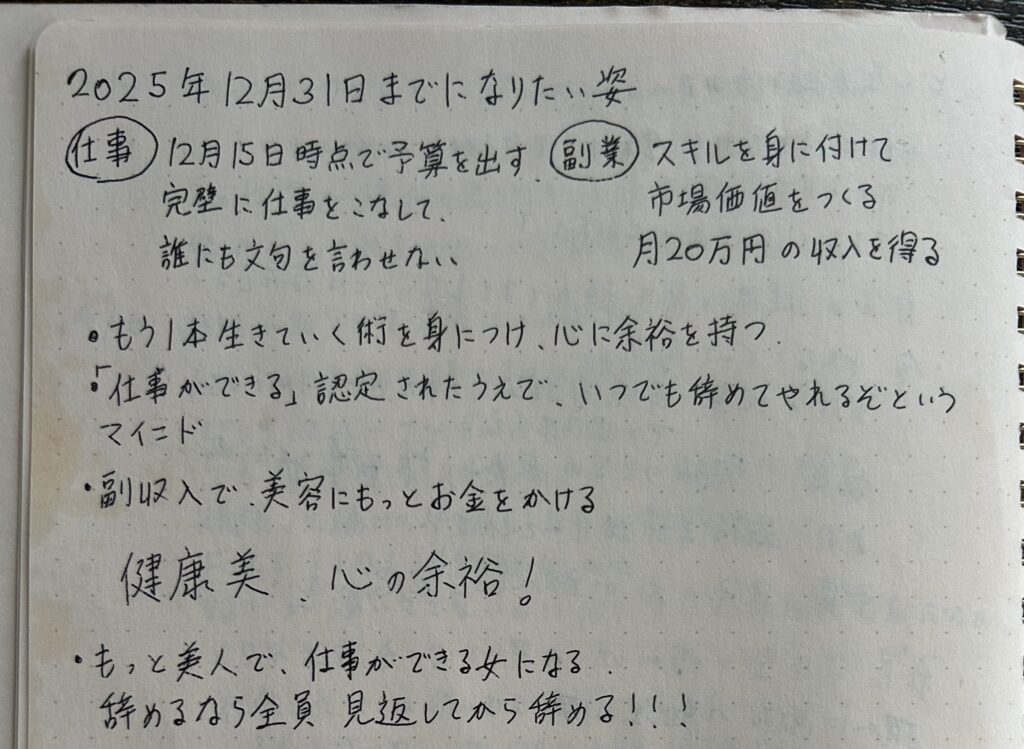 2025年12月31日までになりたい姿
仕事 12月15日時点で予算を出す.
完璧に仕事をこなして、
誰にも文句を言わせない
副業 スキルを身に付けて
市場価値をつくる
月20万円の収入を得る
・もう1本生きていく術を身につけ、心に余裕を持つ.
・「仕事ができる」認定されたうえで、いつでも辞めてやれるぞという
マインド
・副収入で、美容にもっとお金をかける
健康美、心の余裕!
・もっと美人で、仕事ができる女になる.
辞めるなら全員 見返してから辞める!!!